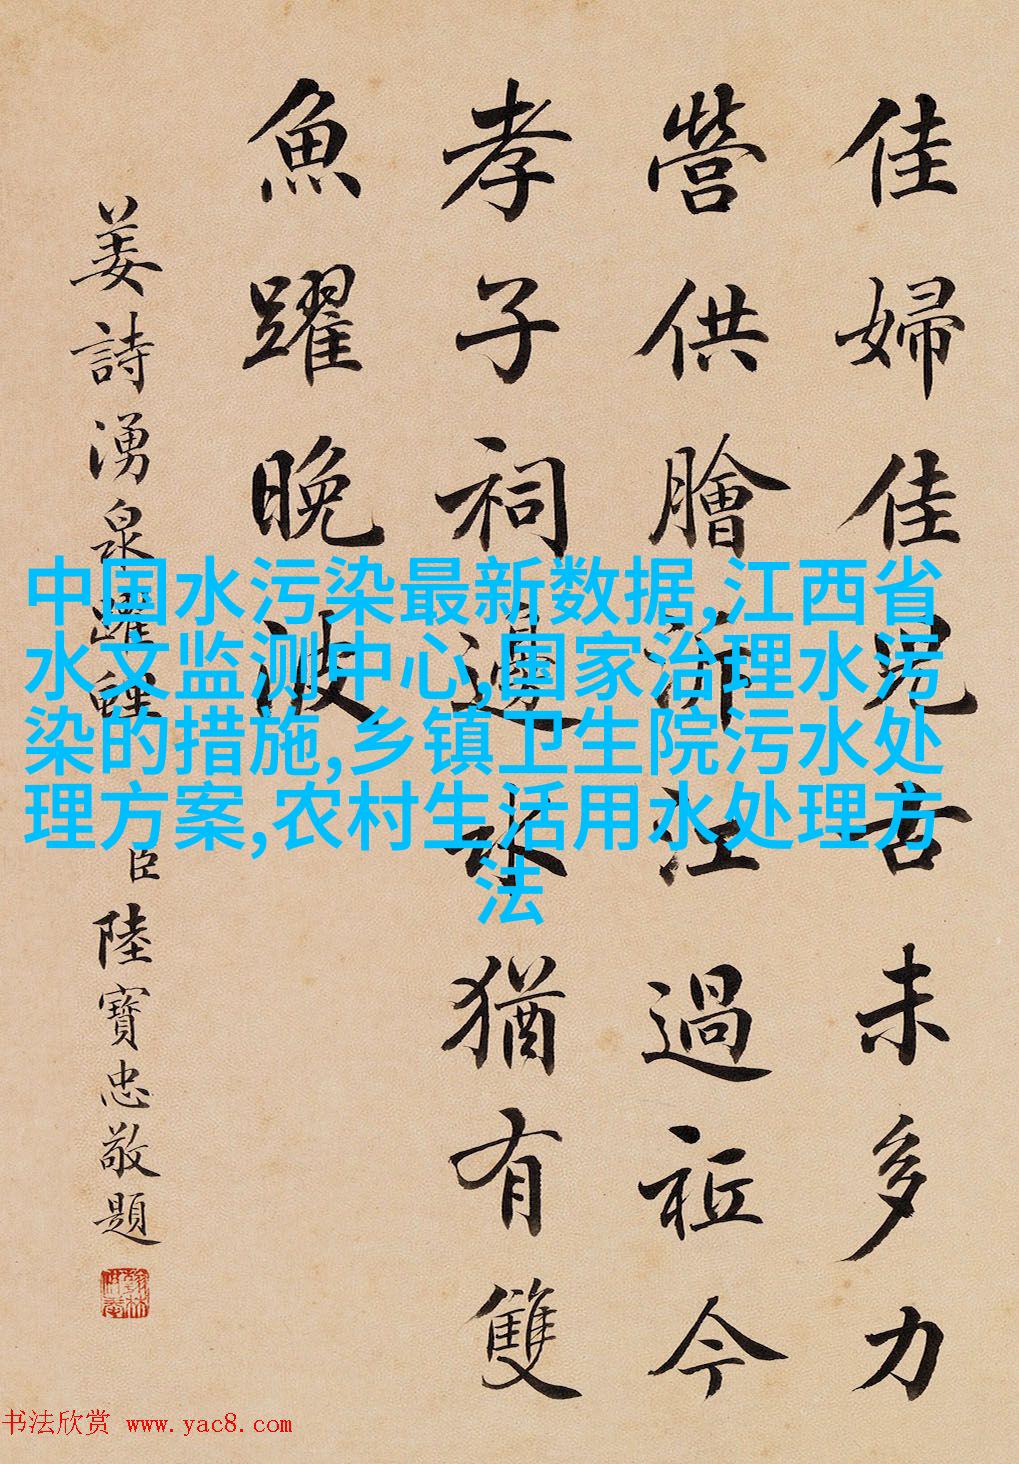 佳婦佳兒古未多力
營供膾泝江過祗今
孝子祠邊水猶有雙
魚躍晚波
姜詩湧泉躍鯉
臣陸寶忠敬題
中国水污染最新数据,江西省
水文监测中心,国家治理水污
染的措施,乡镇卫生院污水处
理方案,农村生活用水处理方
法
书法欣赏 www.yac8.com